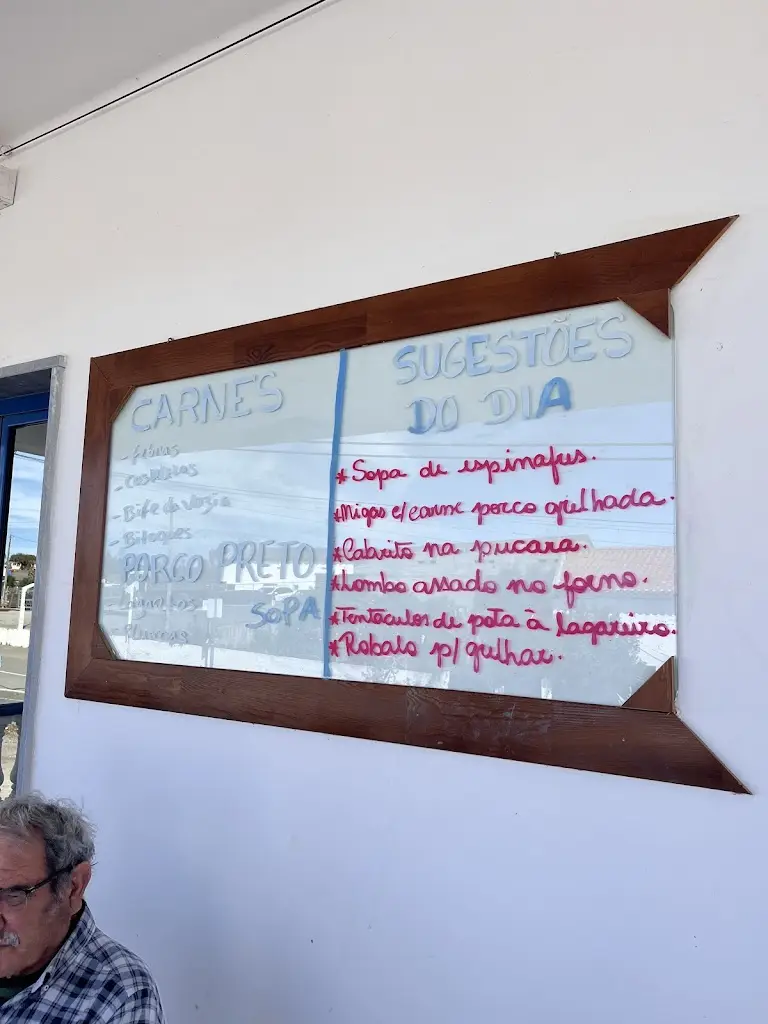 CARNES
- Febras
- Costeletas
- Bife da Vazia
- Bitoques
PORCO PRETO
- Lagartos
SOPA
SUGESTÕES
DO DIA
* Sopa de espinafres.
* Migas c/ carne porco grelhada.
* Cabrito na pucara.
* Lombo assado no forno.
* Tentáculos de pota à lagareiro.
* Robalo p/ grelhar.